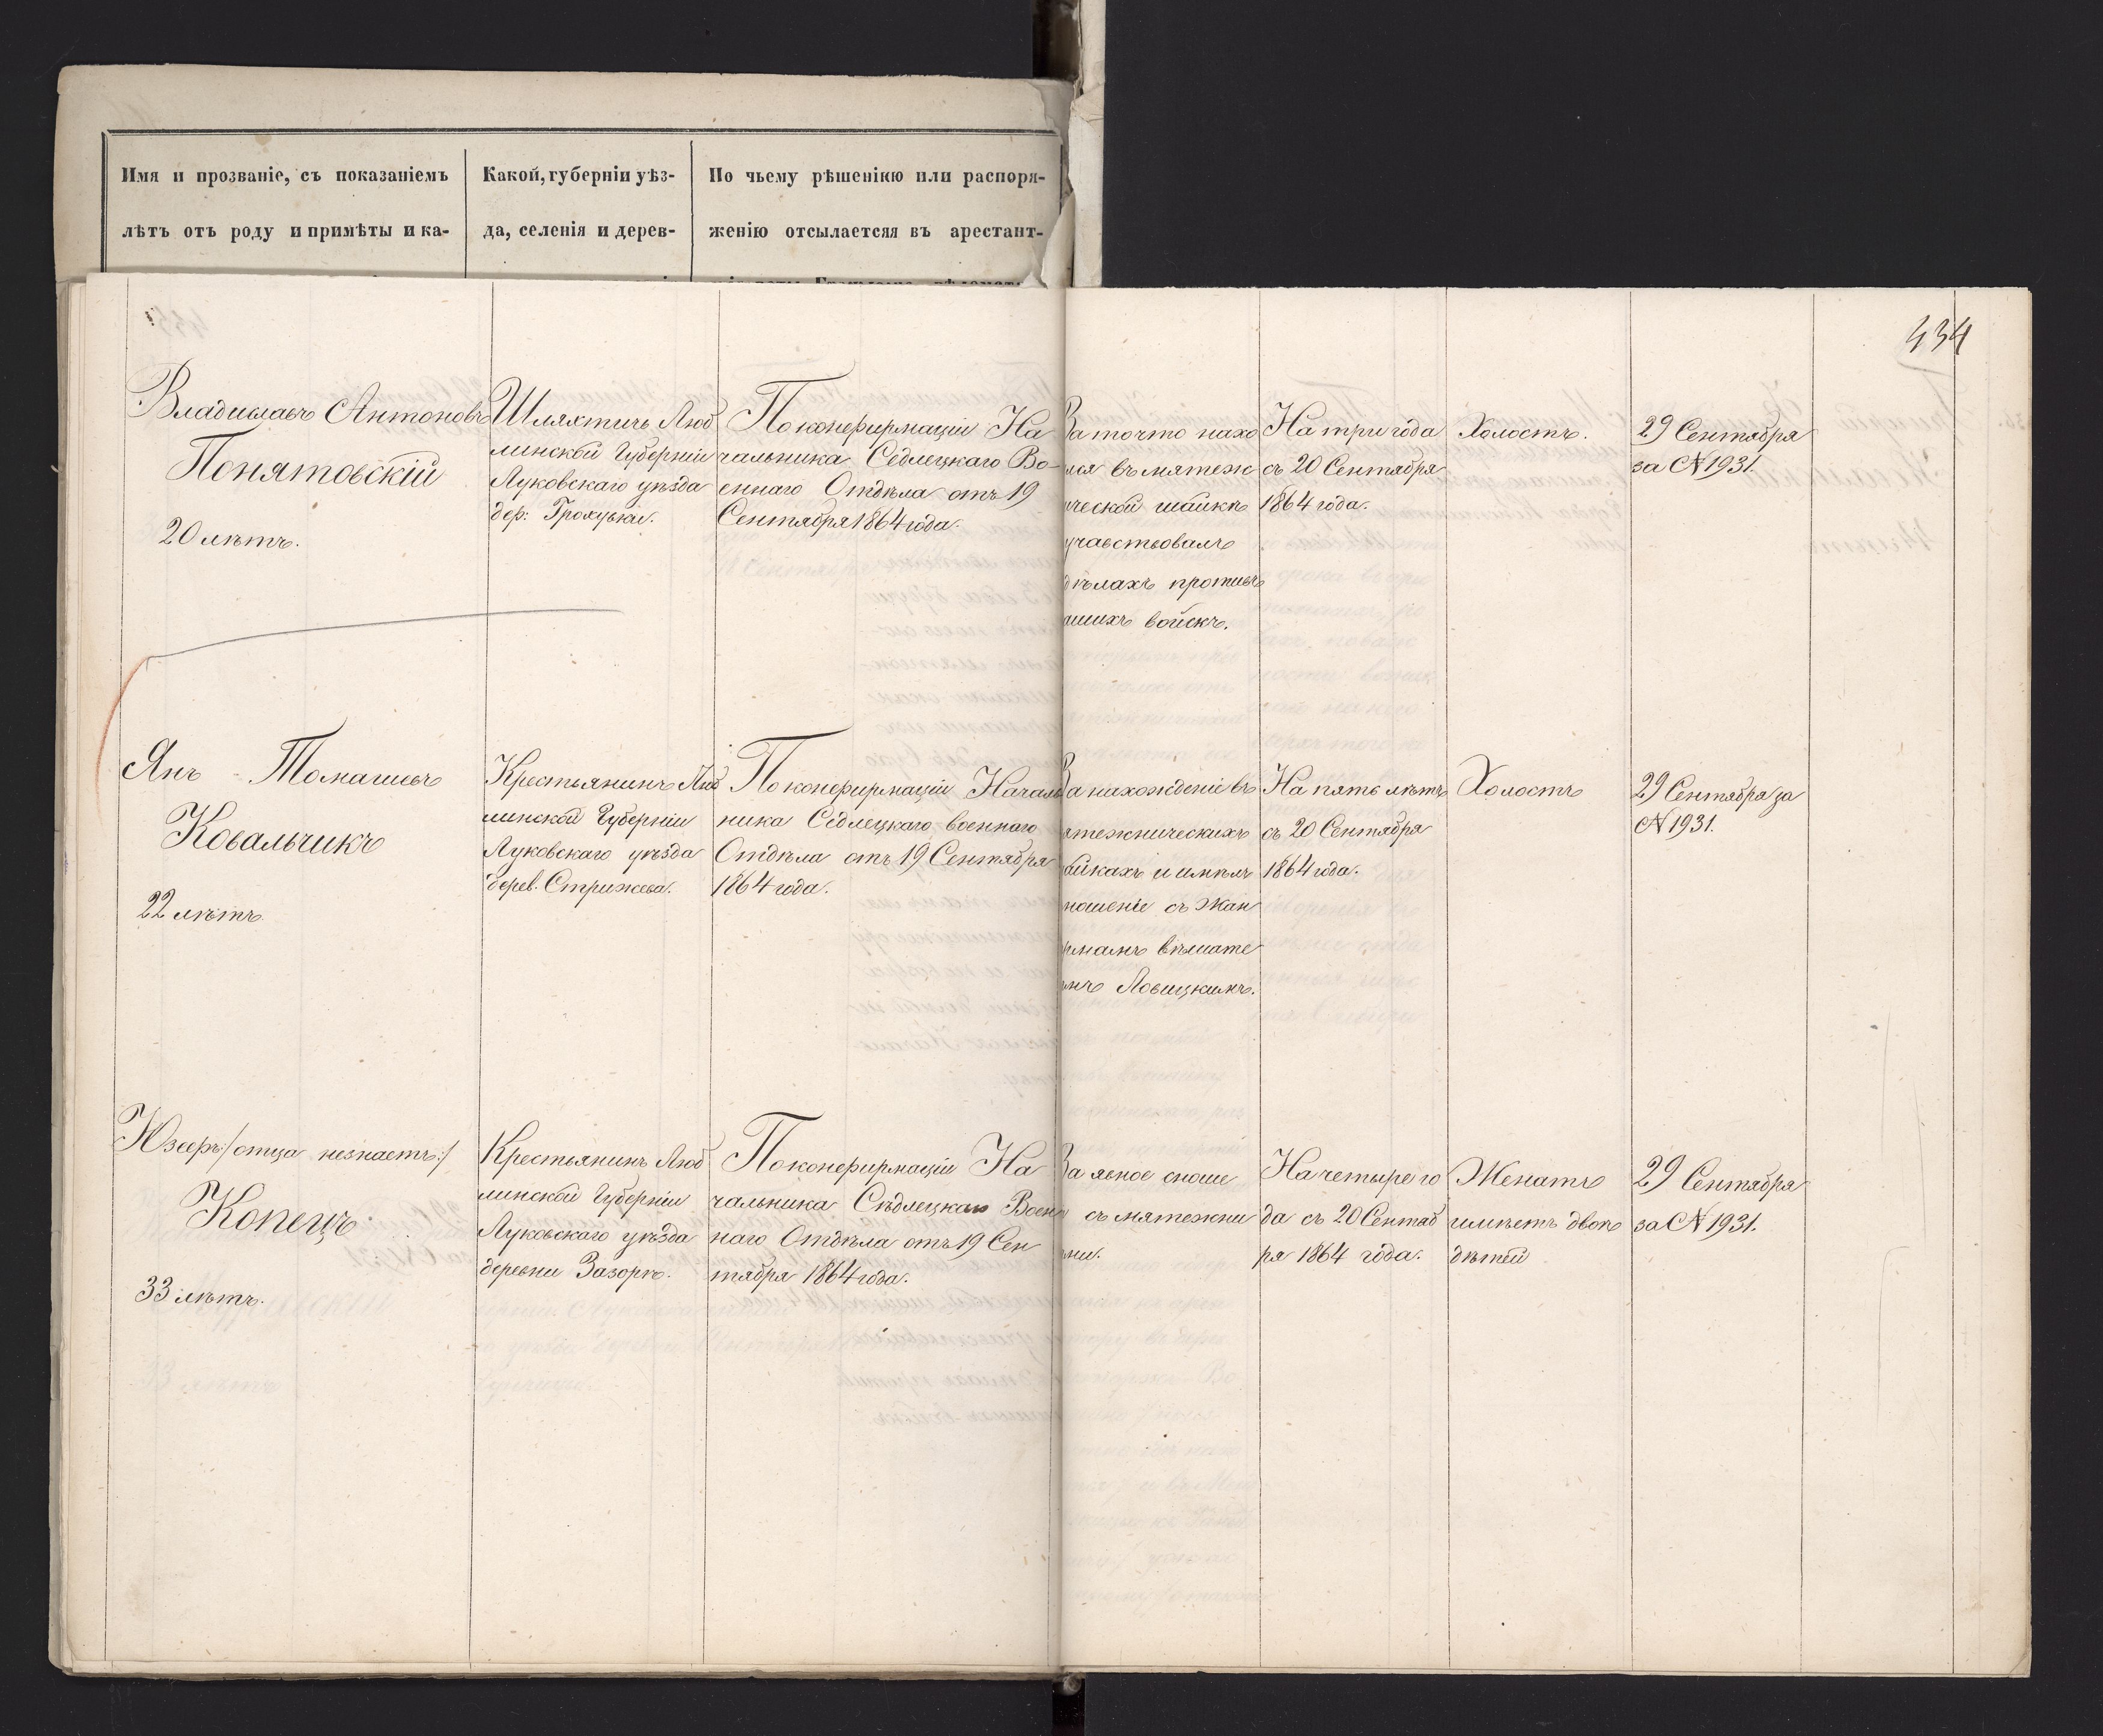 Имя и прозваніе, съ показаніемъ
лѣтъ отъ роду и примѣты и ка-
Какой, губерніи уѣз-
да, селенія и дерев-
По чьему рѣшенію или распоря-
женію отсылается въ арестант-
434
Владиславъ Антоновъ
Понятовскій
20 лѣтъ.
Шляхтичъ Люб
линской Губерніи
Луковскаго уѣзда
дер:
По конфирмаціи На
чальника Седлецкаго Во-
еннаго Отдѣла отъ 19
Сентября 1864 года.
За то что нахо
лся въ мятеж
ической шайкѣ
участвовалъ
дѣлахъ противъ
ашихъ войскъ.
На три года
съ 20 Сентября
1864 года.
Холостъ.
29 Сентября
за № 1931.
Янъ Томашевъ
Ковальчикъ
22 лѣтъ
Крестьянинъ Люб
линской Губерніи
Луковскаго уѣзда
дерев. Стрижева.
По конфирмаціи Началь
ника Седлецкаго военнаго
Отдѣла отъ 19 Сентября
1864 года.
За нахожденіе въ
ятежническихъ
айкахъ и имѣлъ
ношеніе съ Жан
рмамъ вѣшате
мъ Ловицкимъ.
На пять лѣтъ
съ 20 Сентября
1864 года.
Холостъ
29 Сентября за
№ 1931.
Юзефъ /отца незнаетъ:/
Копецъ
33 лѣтъ.
Крестьянинъ Люб
линской Губерніи
Луковскаго уѣзда
деревни Зазоръ.
По конфирмаціи На
чальника Сѣдлецкаго Воен
наго Отдѣла отъ 19 Сен
тября 1864 года.
За явное сноше
съ мятежни
ми.
На четыре го
да съ 20 Сентяб
ря 1864 года.
Женатъ
имѣетъ двое
дѣтей
29 Сентября
за № 1931.